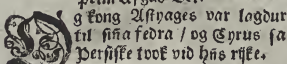 Og kong Astyages var lagdur
til sijna fedra / og Cyrus sa
Persiske took vid hñs rijke.